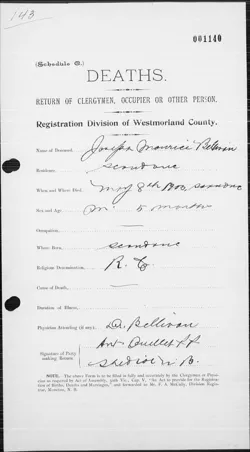 143
001140
(Schedule C.)
DEATHS.
RETURN OF CLERGYMEN, OCCUPIER OR OTHER PERSON.
Registration Division of Westmorland County.
Name of Deceased, Joseph Maurice
Residence, Scoudouc
When and Where Died, May 8th Scoudouc
Sex and Age, M. 5 months
Occupation,
Where Born, Scoudouc
Religious Denomination, R. C.
Cause of Death,
Duration of Illness,
Physician Attending (if any), Dr. Belliveau
Signature of Party making Return, Ouellet
Shediac N. B.
NOTE. The above Form is to be filled in fully and accurately by the Clergymen or Physician as required by Act of Assembly, Cap. V. "An Act to provide for the Registration of Births, Deaths and Marriages," and forwarded to Mr. F. A. McCully, Division Registrar, Moncton, N. B.